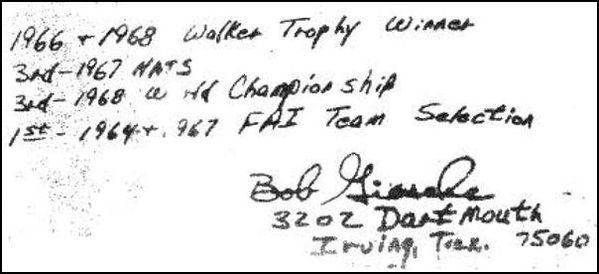 1966 + 1968 Walker Trophy Winner
3rd-1967 NATS
3rd-1968 W rld Championship
1st - 1964 + .967 FAI Team Selection
Bob Gieseke
3202 Dartmouth
Irving, Tex. 75060